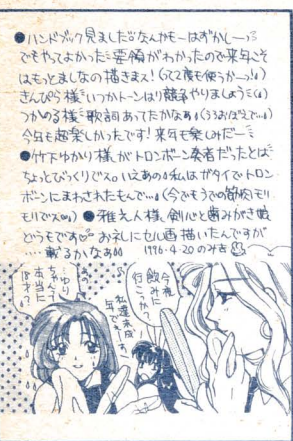 ●ハンドブック見ました。なんかもーはずかしーっ
でもやってよかった 要領がわかったので来年こそ
はもっとましなの描きます！(って2度も使うかーっ！)
きんぴら様 いつかトーンはり競争やりましょう
つかめる様 歌詞あってたかなぁ(うろおぼえで…)
今年も超楽しかったです！来年も楽しみだーー
●竹下ゆかり様がトロンボーン奏者だったとは
ちょっとびっくりでス。いえあの 私はガタイでトロン
ボーンにまわされたもんで…(今でもうでの筋肉モリ
モリでス) ●雅え人様、剣心と歯みがき娘
どうもです♡ お礼にセル画描いたんですが
…載るかなあ 1996・4・20のみき
今夜
飲みに
行こっか？
私達未成
年ですぅ
あの
ゆり
ちゃんて
本当に
18才！？